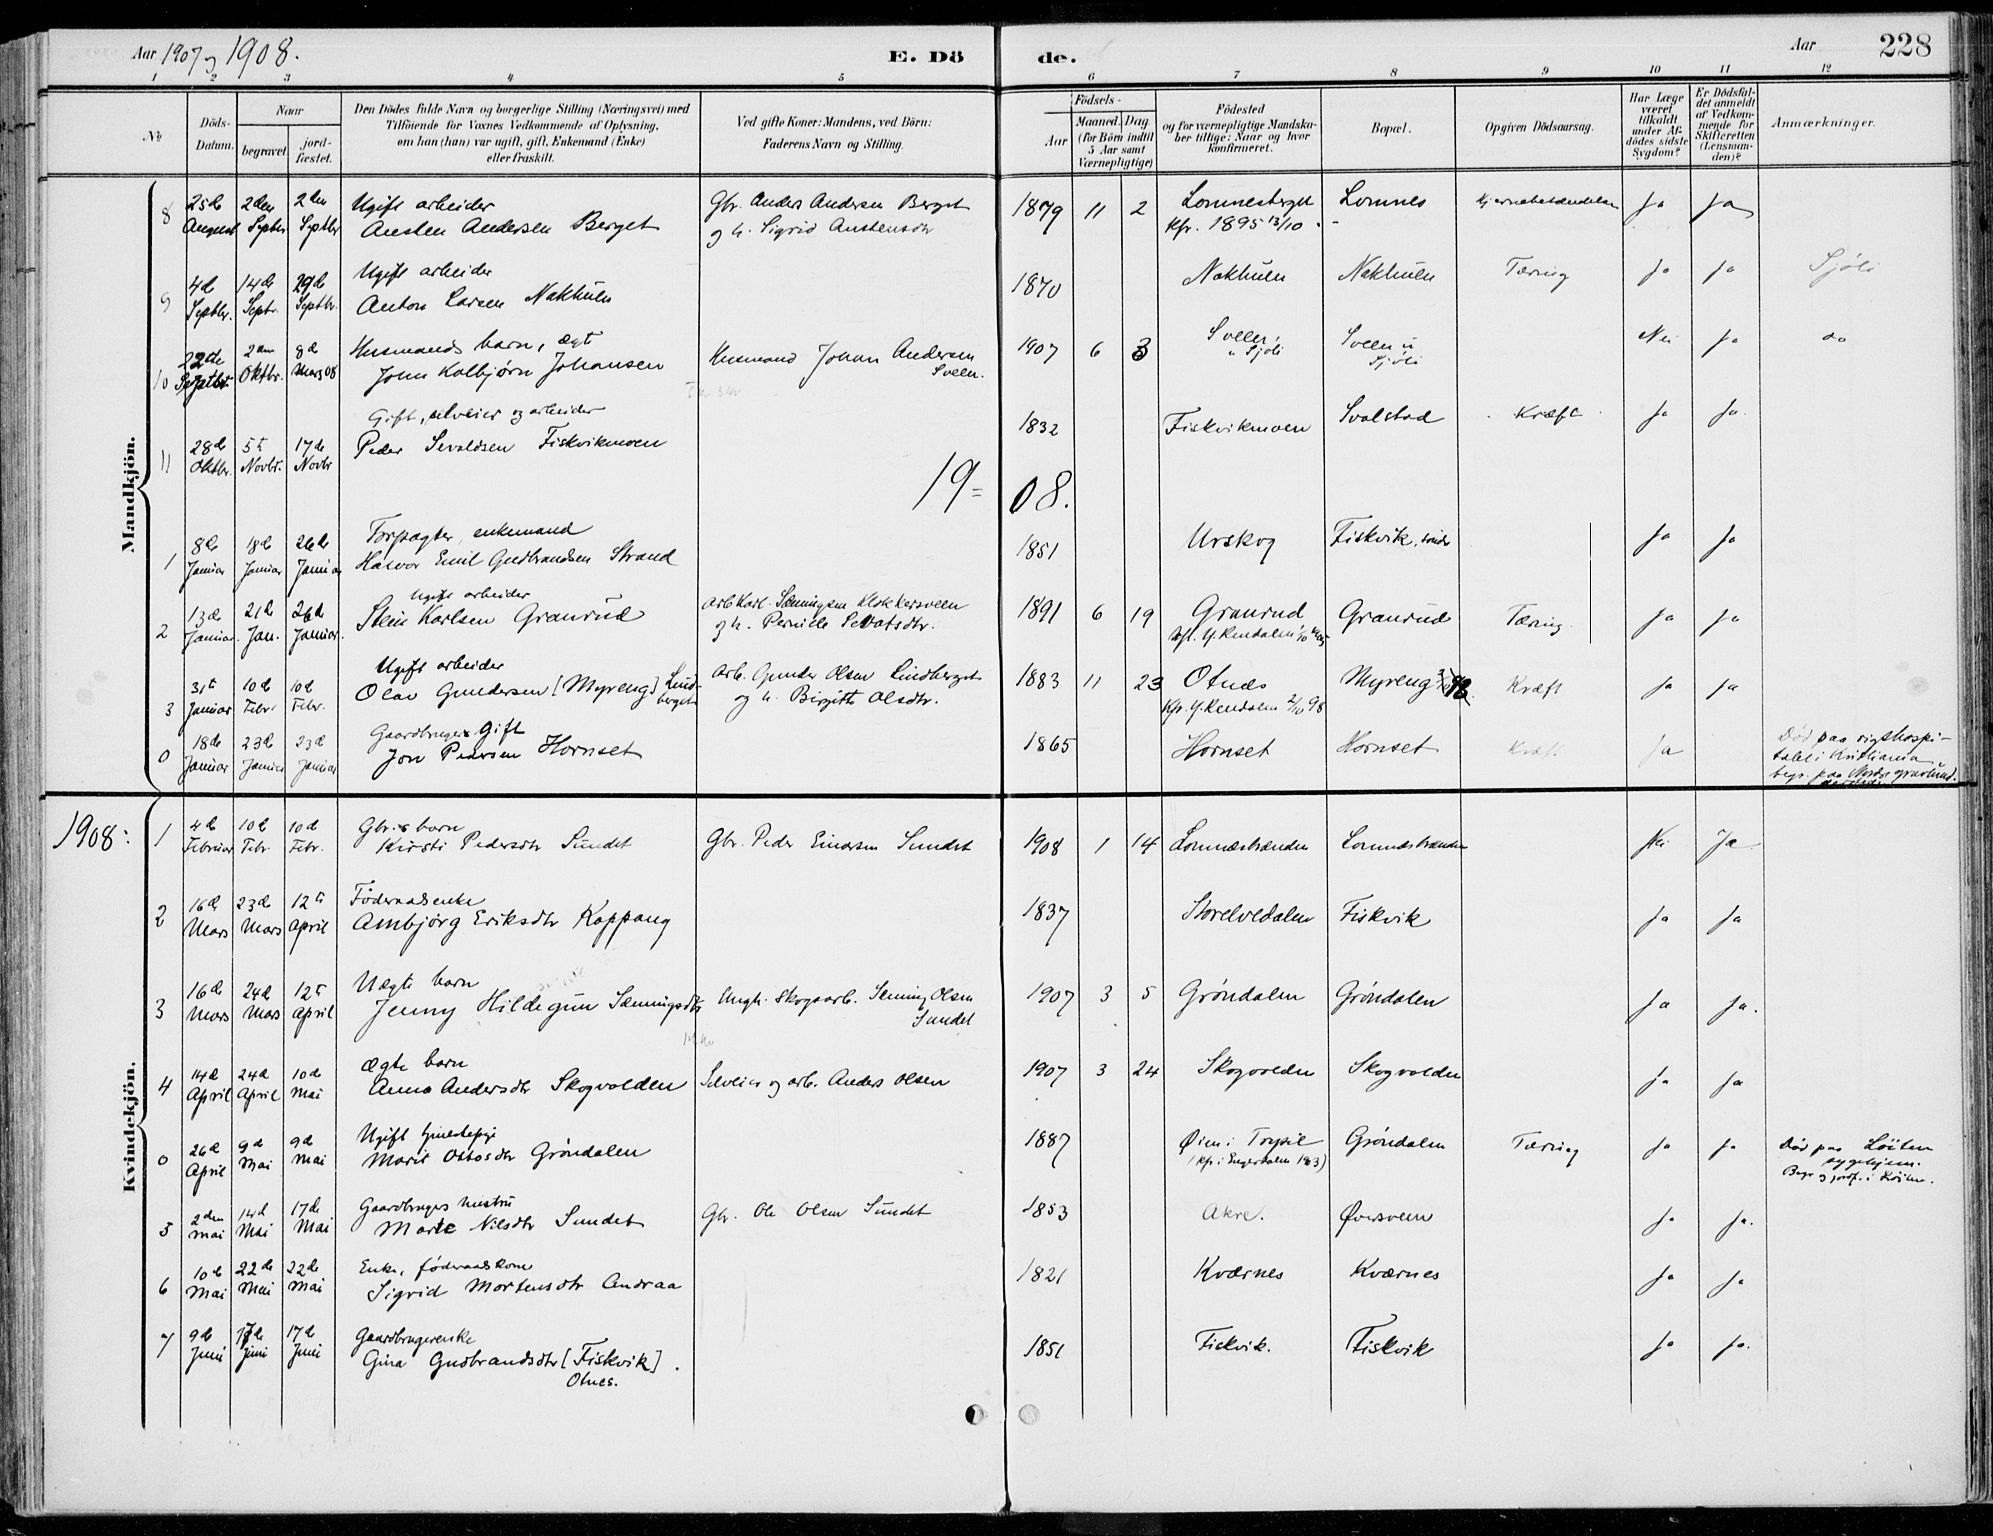 Aar 1907 og 1908.
E. Dö
de.
Aar
228
1 2 3 4 5 6 7 8 9 10 11 12
№
Döds-Datum.
Naar
begravet
jord-fæstet.
Den Dödes fulde Navn og borgerlige Stilling (Næringsvei) med
Tilföiende for Voxnes Vedkommende af Oplysning,
om han (hun) var ugift, gift, Enkemand (Enke)
eller fraskilt.
Ved gifte Koner: Mandens, ved Börn:
Faderens Navn og Stilling.
Födsels-
Aar
Maaned. Dag.
(for Börn indtil
5 Aar samt
Værnepligtige)
Födested
og for værnepligtige Mandska-
ber tillige: Naar og hvor
konfirmeret.
Bopæl.
Opgiven Dödsaarsag.
Har Læge
været
tilkaldt
under Af-
dödes sidste
Sygdom?
Er Dödsfal-
det anmeldt
af Vedkom-
mende for
Skifteretten
(Lensman-
den)?
Anmærkninger.
Mandkjön.
8 25d August 2den Septbr 2den Septbr Ugift arbeider
Austen Andersen Berget Gbr. Anders Andersen Berget
og h. Sigrid Austensdtr 1879 11 2 Lomnesberget
kfr. 1895 13/10. Lomnes Ja Ja
9 4d Septbr. 14d Septr. 29d Septbr. Ugift arbeider
Anton Larsen Nakhulen 1870 Nakhulen Nakhulen Tæring Ja Ja Sjöli
10 22de Septbr. 2den Oktbr. 8d Mars 08 Husmands barn, ægt
John Kolbjørn Johansen Husmand Johan Andersen
Sveen. 1907 6 3 Sveen,
u Sjöli Sveen u
Sjöli Nei Ja do
11 28d Oktbr. 5t Novbr. 17de Novbr Gift, selveier og arbeider
Peder Sevaldsen Fiskvikmoen 1832 Fiskvikmoen Svalstad Kræft Ja Ja.
19=08.
1 8de Januar 18d Januar 26de Januar Forpagter, enkemand
Halvor Emil Gudbrandsen Strand 1851 Urskog Fiskvik, söndr Ja Ja
2 13de Januar. 21d Jan. 26d Januar. Ugift arbeider
Stein Karlsen Granrud Arb Karl Sæmingsen Klokkersveen
og h. Pernille Sevatsdtr. 1891 6 19 Granrud
kfr. Y. Rendalen 1/10 1905 Granrud Tæring. Ja Ja
3 31t Januar 10d Febr. 10d Febr. Ugift arbeider
Olav Gundersen [Myreng] Lind-
berget Arb. Gunder Olsen Lindberget
og h. Birgitte Olsdtr. 1883 11 23 Otnes
kfr. Y. Rendalen 2/10 98 Myreng Kræft Ja Ja
0 18de Januar 23d Januar 23d Januar Gaardbruger Gift
Jon Pedersen Hornset 1865 Hornset Hornset Kræft Ja Död paa rigshospi-
talet i Kristiania
begr. paa Nordre gravlund.
1908:
Kvindekjön.
1 4d Februar 10d Febr. 10d Febr. Gbr.s barn
Kirsti Pedersdtr Sundet Gbr. Peder Einarsen Sundet 1908 1 14 Lomnæstranden Lomnæstranden Nei Ja
2 16de Mars 23d Mars 12te April Föderaadsenke
Ambjörg Eriksdtr Koppang 1837 Storelvedalen Fiskvik Ja Ja
3 16de Mars 24d Mars 12t April Uægte barn
Jenny Hildegun Sæmingsdtr Ungk. Skogsarb. Seming Olsen
Sundet 1907 3 5 Gröndalen Gröndalen Ja Ja.
4 14d April 24d April 10d Mai Ægte barn
Anna Andersdtr Skogvolden Selveier og arb. Anders Olsen 1907 3 24 Skogvolden Skogvolden Ja Ja
0 26d April 9d Mai 9d Mai Ugift tjenestepige
Marit Ottosdtr Gröndalen 1887 Øien i Trysil
(kfr. i Engerdalen 1903) Gröndalen Tæring Ja Ja Död paa Löiten
sygehjem.
Begr og jordf. i Löiten.
5 2den Mai 14d Mai 17de Mai Gaardbrugers hustru
Marte Nilsdtr Sundet Gbr. Ole Olsen Sundet 1853 Akre. Øversveen Ja Ja.
6 10d Mai 22de Mai 22de Mai Enke, föderaadskone
Sigrid Mortensdtr Andraa 1821 Kværnes Kværnes Ja Ja
7 9d Juni 17de Juni 17de Juni Gaardbrugerenke
Gina Gudbrandsdtr [Fiskvik].
Otnes. 1851 Fiskvik. Fiskvik Ja Ja.